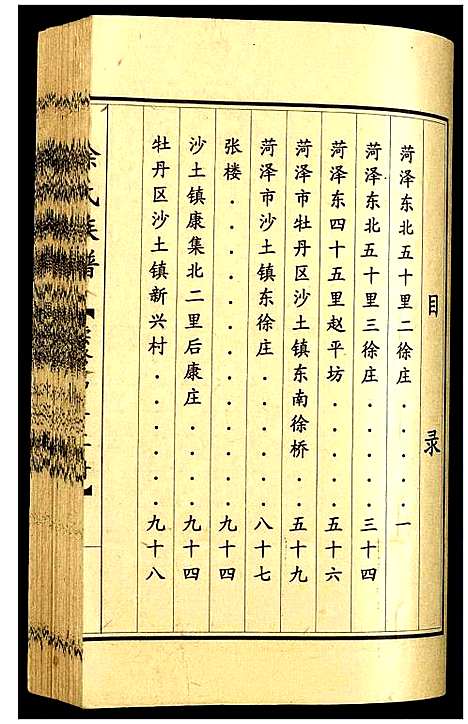 目录
菏泽东北五十里二徐庄......一
菏泽东北五十里三徐庄.....三十四
菏泽东四十五里赵平坊.....五十六
菏泽市牡丹区沙土镇东南徐桥.五十九
菏泽市沙土镇东徐庄......八十七
张楼............九十四
沙土镇康集北二里后康庄....九十四
牡丹区沙土镇新兴村......九十八
徐氏族谱